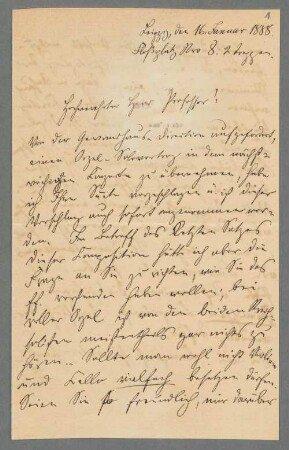 1
Leipzig, den 16. Januar 1888
Roßplatz Nro 8. 2 Treppen.
Hochgeehrter Herr Professor!
Von der Gewandhausdirection aufgefordert,
einen Orgel-Solovortrag in dem nächst-
wöchigen Concerte zu übernehmen, habe
ich Ihre Suite vorgeschlagen u. ist dieser
Vorschlag auch sofort angenommen wor-
den. In Betreff des letzten Satzes
dieser Composition hätte ich aber die
Frage an Sie zu richten, wie Sie das
ff verstanden haben wollen; bei
voller Orgel ist von den beiden
meistentheils gar nichts zu
hören. Sollte man wohl nicht Violine
und Cello vielfach besetzen dürfen.
Seien Sie so freundlich, mir darüber